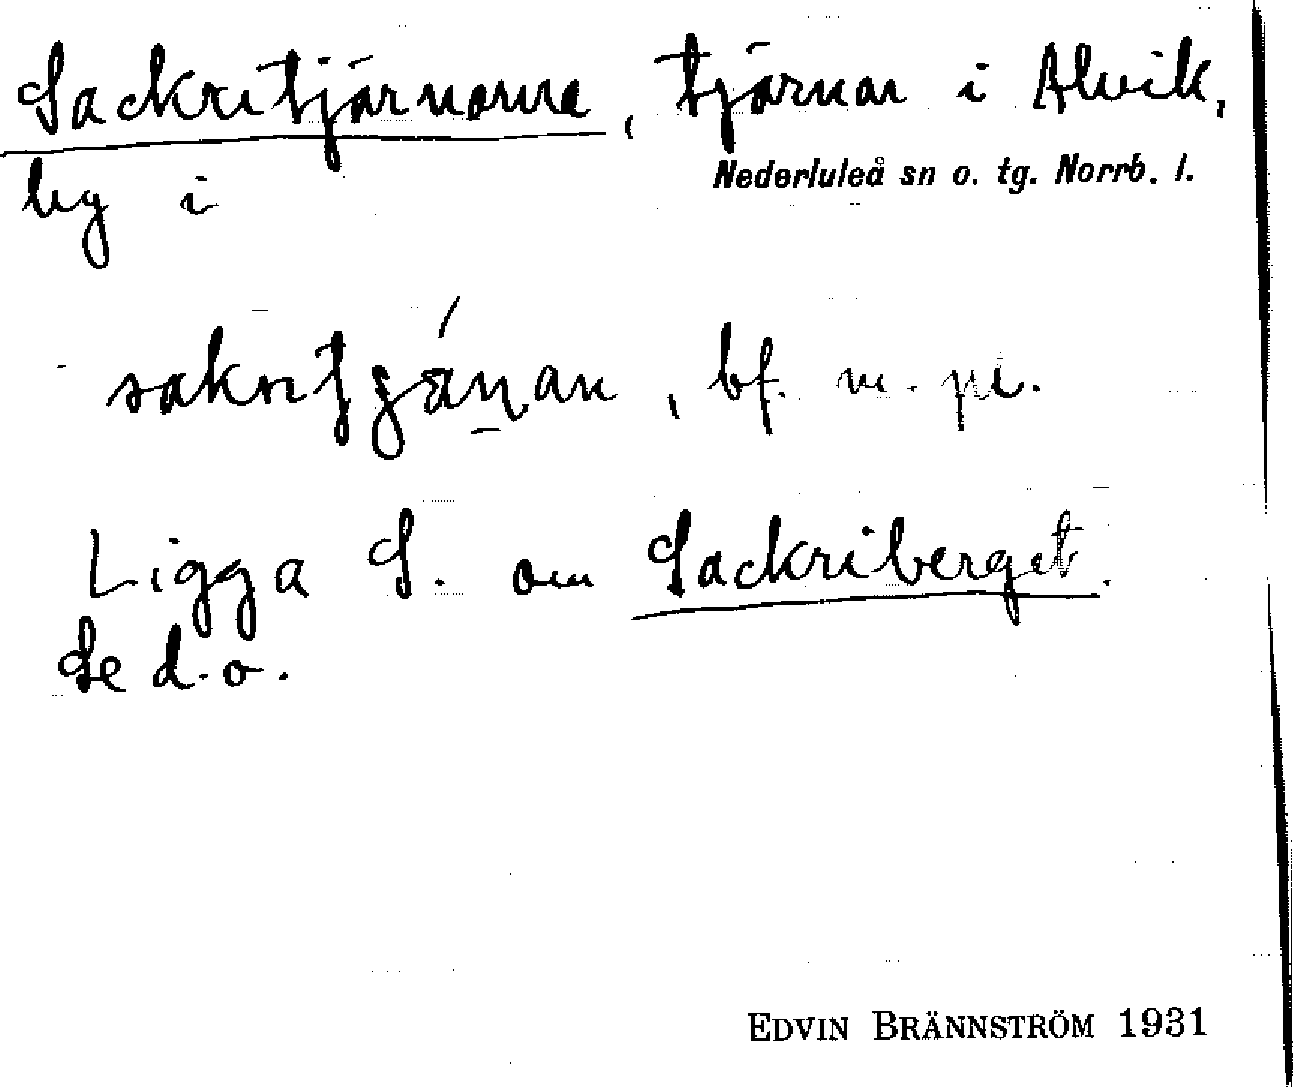 Sackritjärnarna, tjärnar i Alvik,
Nederluleå sn o. tg. Norrb. l.
by i
, bf. m. pl.
Ligga S. om Sackriberget.
Se d.o.
EDVIN BRÄNNSTRÖM 1931